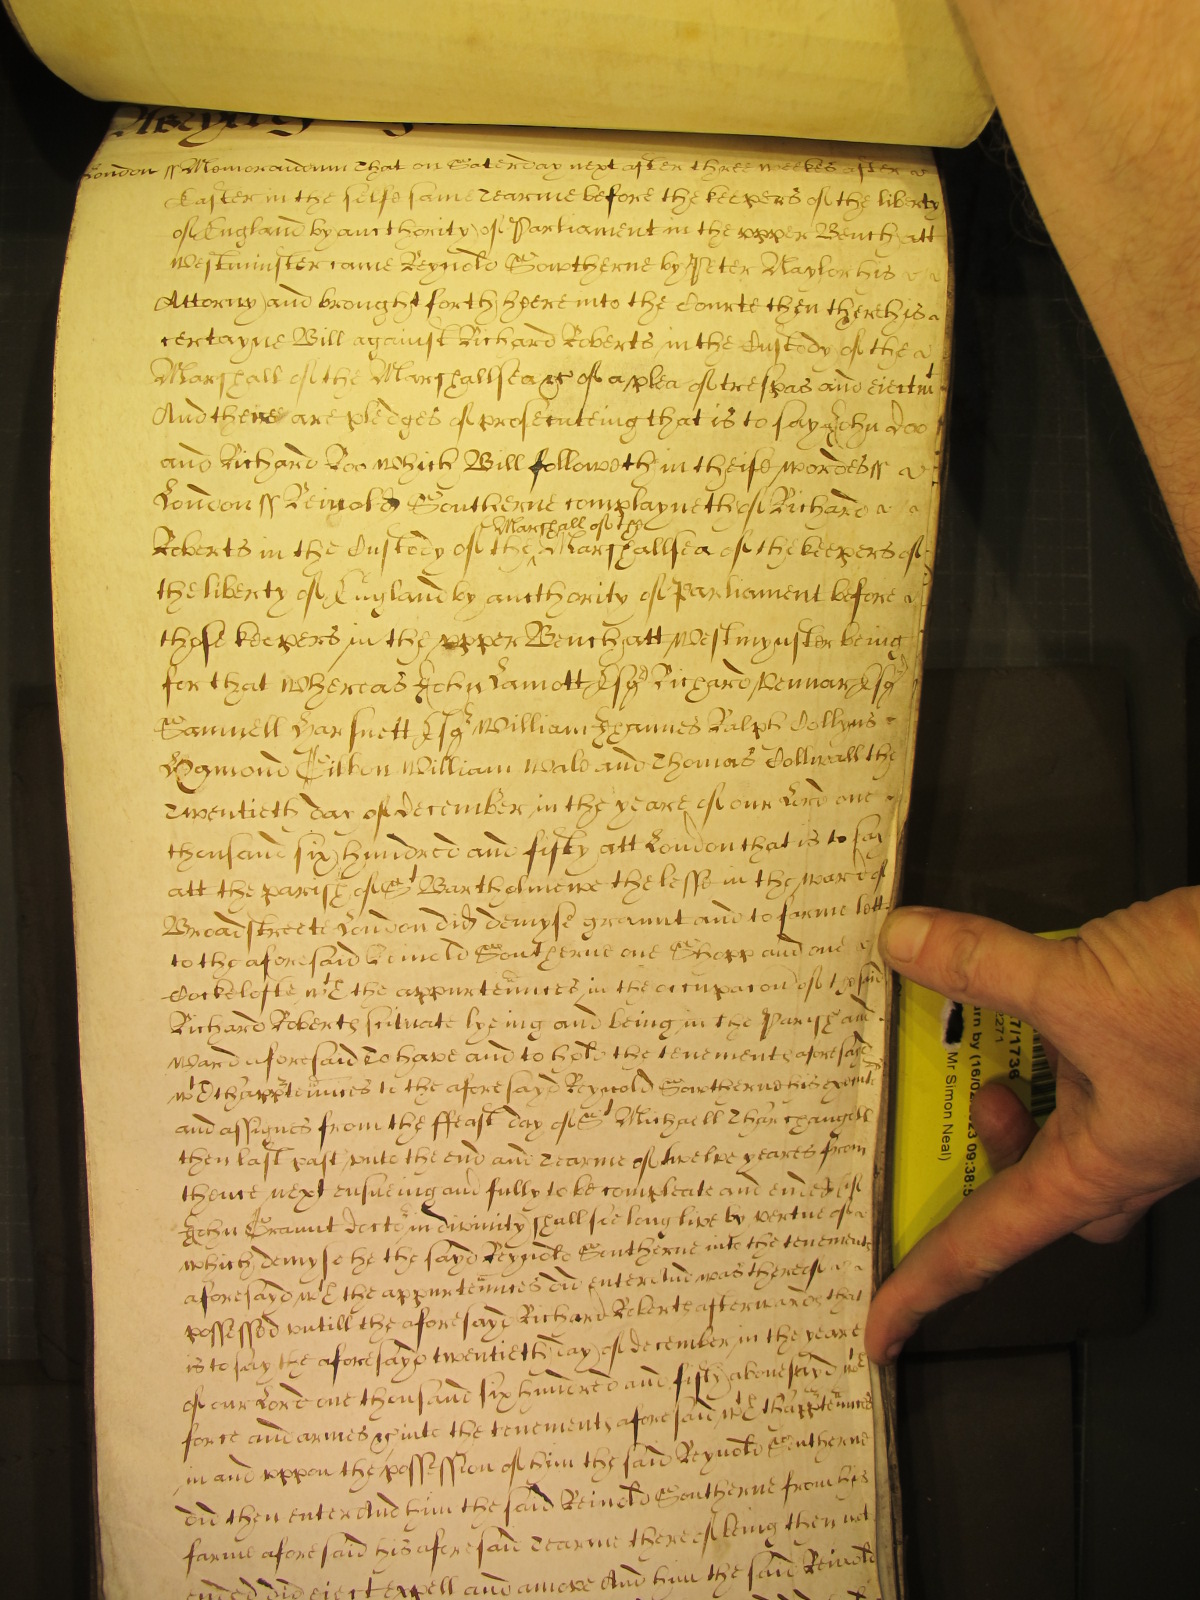 London ss Memorandum That on Saterday next after three weekes after
Easter in the selfe same Tearme before the keepers of the liberty
of England by aucthority of Parliament in the upper Bench att
Westminster came Reynold Sowtherne by Peter Naylor his
Attorny and brought forth heere into the Courte then there his
certayne Bill against Richard Roberts in the Custody of the
Marshall of the Marshallsea &c of a plea of trespas and eiectmt
And there are pledges of prosecuteing that is to say John Doo
and Richard Roo which Bill followeth in theise wordes ss
London ss Reinold Southerne complayneth of Richard
Marshall of the
Roberts in the Custody of the ^ Marshallsea of the keepers of
the liberty of England by aucthority of Parliament before
those keepers in the upper Bench att Westmynster being
for that Whereas John Lamott Esqr Richard Pennar Esqr
Samuell Harsnett Esqr William Ralph Collyns
William Wald and Thomas Collwall the
Twentieth day of December in the yeare of our Lord one
thousand six hundred and fifty att London that is to say
att the parish of St Bartholmewe the lesse in the ward of
Broadstreete London did demyse graunt and to farme lett
to the aforesaid Reinold Southerne one Shopp and one
Cockelofte wth the appurtennces in the occupacon of the said
Richard Roberts scituate lyeing and being in the Parish and
Ward aforesaid To have and to hold the tenements aforesaid
wth thapptennces to the aforesayd Reynold Sowtherne his executs
and assignes from the ffeast day of St Michaell Tharchangell
then last past unto the end and Tearme of twelve yeares from
thence next ensueing and fully to be compleate and ended if
John Graunt doctor in divinity shall soe long live by vertue of
which demyse he the sayd Reynold Southerne into the tenements
aforesayd wth the appurtennces did enter And was thereof
possessed untill the aforesayd Richard Roberts afterwards that
is to say the aforesayd twentieth day of December in the yeare
of our Lord one thousand six hundred and fifty abovesayd wth
force and armes &c into the tenements aforesaid wth thapptennces
in and uppon the possession of him the said Reynold Southerne
did then enter And him the said Reinold Southerne from his
farme aforesaid his aforesaid Tearme thereof being then not
ended did eiect expell and amove And him the said Reinold
7/1736
2271
urn by (16/02/2023 09:38:5
Mr Simon Neal)